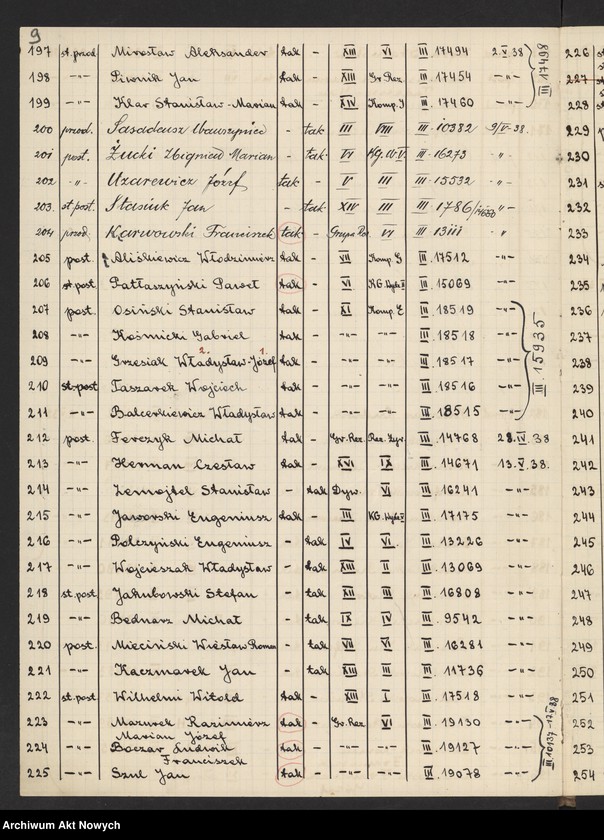 9
197 st.przod Mirosław Aleksander tak - XIII VI III. 17494 2.V.38 226
198 -"- Piwnik Jan tak - XIII Gr Rez III. 17454 -"- 227
199 -"- Klar Stanisław-Marian tak - XIV Komp. III. 17460 -"- 228
III 17498
200 przod. Wawrzyniec - tak III VIII III. 10382 9/V-38. 229
201 post. Żucki Zbigniew Marian - tak VI III-16273 " 230
202 -"- Uzarewicz Józef tak - V III III-15532 " 231
203. st.post. Stasiuk Jan - tak XIV III III-1786 " 232
204 przod. Karwowski Franciszek tak - Grupa Rez VI III 13111 " 233
205 post. Aliśkiewicz Włodzimierz tak - VII Komp. G III. 17512 -"- 234
206 st.post Pałtaszyński Paweł tak - VI III. 15069 -"- 235
207 post. Osiński Stanisław tak - XI Komp. E III. 18519 -"- 236
208 -"- Kośmicki Gabriel tak - -"- -"- III. 18518 -"- 237
2. 1.
209 -"- Grzesiak Władysław-Józef tak - -"- -"- III. 18517 -"- 238
210 st.post Taszarek Wojciech tak - -"- -"- III. 18516 -"- 239
211 -"- Balcerkiewicz Władysław tak - -"- -"- III. 18515 -"- 240
III. 15935
212 post. Ferczyk Michał tak - Gr. Rez. III. 14768 28.IV.38 241
213 -"- Herman Czesław tak - XVI IX III. 14671 13.V.38. 242
214 -"- Zemojtel Stanisław - tak Dyw. VI III. 16241 -"- 243
215 -"- Jaworski Eugeniusz tak - III III. 17175 -"- 244
216 -"- Połczyński Eugeniusz - tak IV VI. III. 13226 -"- 245
217 -"- Wojcieszak Władysław - tak XIII II III. 13069 -"- 246
218 st.post. Jakubowski Stefan - tak XII III III. 16808 -"- 247
219 -"- Bednarz Michał - tak IX IV III. 9542 -"- 248
220 post. Mieciński Wiesław Roman - tak VII VI III. 16281 -"- 249
221 -"- Kaczmarek Jan - tak XIII III III. 11736 -"- 250
222 st.post Wilhelmi Witold tak - XIII I III. 17518 -"- 251
223 -"- Mazurek Kazimierz tak - Gr. Rez VI III. 19130 -"- 252
Marian Józef
224 -"- Boczar Ludwik tak - -"- -"- III. 19127 -"- 253
Franciszek
225 -"- Szul Jan tak - -"- -"- III. 19078 -"- 254
Archiwum Akt Nowych